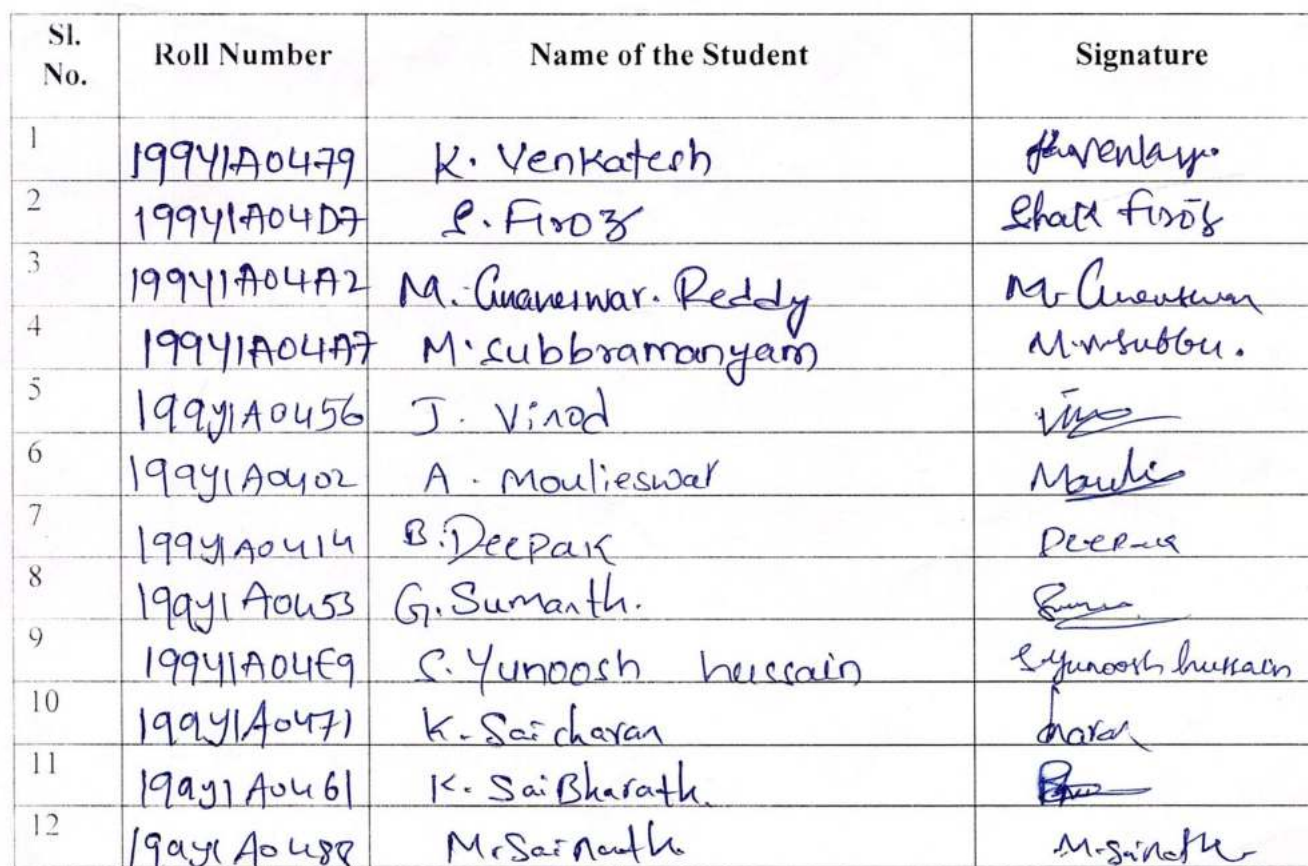 Sl. No. Roll Number Name of the Student Signature
1 199Y1A0479 K. Venkatesh
2 199Y1A04D7 S. Firoz Shaik firoz
3 199Y1A04A2 M. Gnaneswar. Reddy M. Gnaneswar
4 199Y1A04A7 M. Subbramanyam M.V.Subbu.
5 199Y1A0456 J. Vinod
6 199Y1A0402 A. Moulieswar Mouli
7 199Y1A0414 B. Deepak Deepak
8 199Y1A0453 G. Sumanth.
9 199Y1A04E9 S. Yunoosh hussain S.Yunoosh hussain
10 199Y1A0471 K. Saicharan charan
11 199Y1A0461 K. SaiBharath.
12 199Y1A0488 M. Sainath. M. Sainath